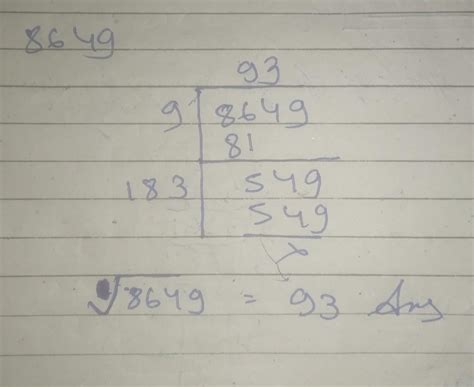 8649
93
9 8649
81
183 549
549
x
√8649 = 93 Ans